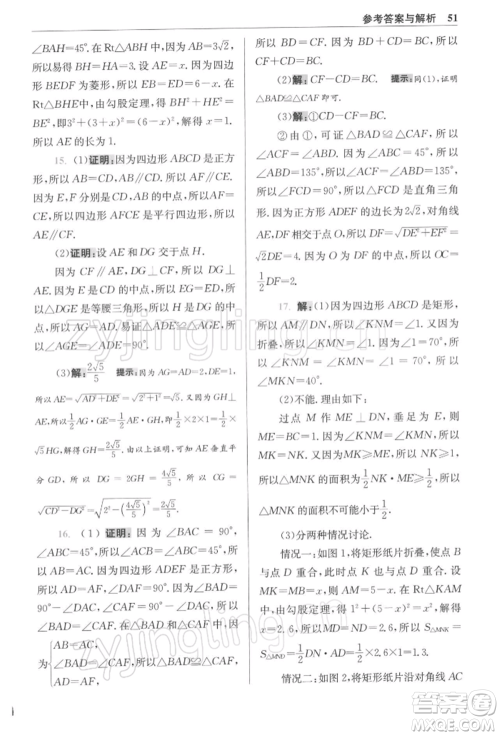 参考答案与解析 51
∠BAH=45°. 又因为AB=3√2,所以
易得BH=HA=3. 因为四边
形BEDF为菱形,所以BE=DE=6-x. 在
Rt△BHE中,由勾股定理,得BH²+HE²=
BE²,即3²+(3+x)²=(6-x)²,解得x=1.
所以AE的长为1.
15. (1)证明:因为四边形ABCD是正方
形,所以AB∥CD,且AB=CD. 因为点
E,F分别是CD,AB的中点,所以AF=CE.
所以四边形AFCE是平行四边形,所以
AE∥CF.
(2)证明:设AE和DG交于点H.
因为CF⊥DG,所以DG⊥AE. 因
为E是CD的中点,所以EG=ED,所以
△DEG是等腰三角形,所以AE垂直平分
DG,所以AD=AG,易证△ADE≌△AGE,所
以∠AGE=∠ADE=90°.
(3)解:2√5/5 提示:因为AD=2,DE=1,
所以AE=√(AD²+DE²)=√(2²+1²)=√5. 因为
1/2AG·GE=1/2AE·HG,所以1/2×2×1=1/2×
√5HG,解得GH=2√5/5. 由以上证明,可知AE垂直平
分GD,所以DG=2GH=4√5/5,所以CG=
√(CD²-DG²)=√(2²-(4√5/5)²)=2√5/5.
16. (1)证明:因为∠BAC=90°,
∠ABC=45°,所以∠ACB=∠ABC=45°,所
以AB=AC. 因为四边形ADEF是正方形,
所以AD=AF,∠DAF=90°. 因为∠BAD=
90°-∠DAC,∠CAF=90°-∠DAC,所以
∠BAD=∠CAF. 在△BAD和△CAF中,因
为
AB=AC,
∠BAD=∠CAF,所以△BAD≌△CAF,
AD=AF,
所以BD=CF. 因为BD+CD=BC,所以
CF+CD=BC.
(2)解:CF-CD=BC. 提示:同(1),证明
△BAD≌△CAF即可.
(3)解:①CD-CF=BC.
②由①,可证△BAD≌△CAF,所以
∠ACF=∠ABD. 因为∠ABC=45°,所以
∠ABD=135°,所以∠ACF=∠ABD=135°,
所以∠FCD=90°,所以△FCD是直角三角
形. 因为正方形ADEF的边长为2,且对角线
AE,DF相交于点O,所以DF=√(DE²+EF²)=
√2DE=2√2. 因为O为DF的中点,所以OC=
1/2DF=√2.
17. 解:(1)因为四边形ABCD是矩形,所
以AM∥DN,所以∠KNM=∠1. 因为
∠1=70°,所以∠KNM=∠1=70°. 因为
折叠,所以∠KMN=∠1=70°,所以
∠MKN=40°.
(2)不能. 理由如下:
过点M作ME⊥DN,垂足为E,则
ME=AD=1. 由(1),知∠KNM=∠KMN,所
以MK=NK. 因为MK≥ME,所以NK≥1,
所以△MNK的面积为1/2NK·ME≥1/2,所以
△MNK的面积不可能小于1/2.
(3)分两种情况讨论.
情况一:如图1,将矩形纸片折叠,使点B
与点D重合,此时点K也与点D重合,设
MK=MB=x,则AM=5-x. 在Rt△KAM
中,由勾股定理,得1²+(5-x)²=x²,解得
x=2.6,所以MD=ND=2.6,所以S△MNK=
S△MND=1/2×2.6×1=1.3.
情况二:如图2,将矩形纸片沿对角线AC